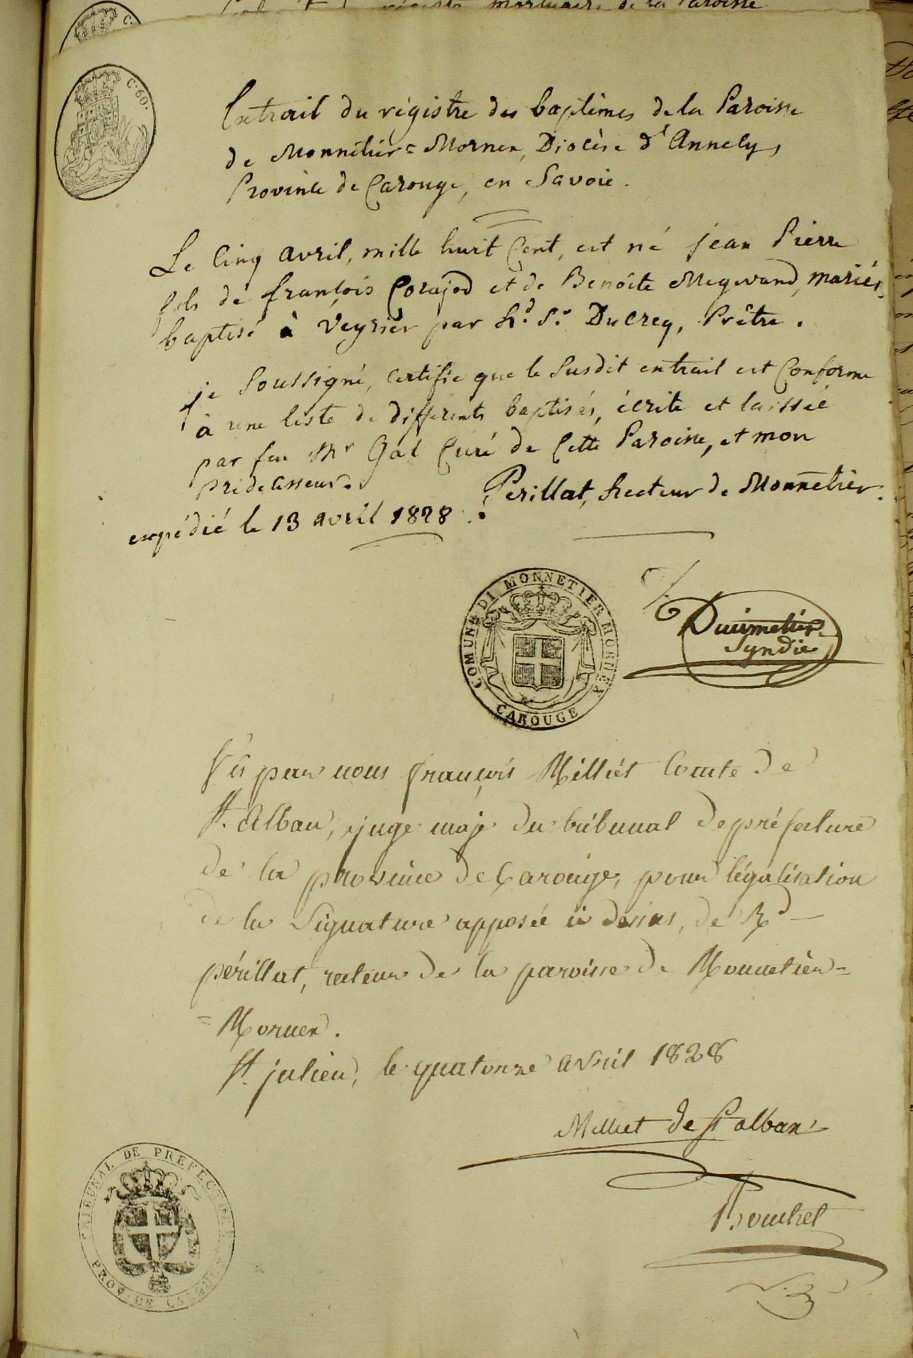 registre mortuaire de la Paroisse
C. 60.
Extrait du régistre des baptêmes de la Paroisse
de Monnêtier = Mornex, Diocèse d'Annecy,
Province de Carouge, en Savoie.
Le Cinq avril, mille huit Cent, est né jean Pierre
fils de françois Corajod et de Benoîte Megevand, mariés,
baptisé à Veyrier par Rd. Sr. Ducrey, Prêtre.
je soussigné, certifie que le susdit extrait est Conforme
à une liste de différents baptisés, écrite et laissée
par feu Mr Gal Curé de Cette Paroisse, et mon
prédécesseur.
Perillat, Recteur de Monnetier.
expédié le 13 avril 1828.
COMUNE DI MONNETIER MORNEX
CAROUGE
Syndic
Vû par nous françois Milliet Comte de
St. Alban, juge maje du tribunal de préfecture
de la province de Carouge, pour légalisation
de la Signature apposée ci dessus, de Rd
périllat, recteur de la paroisse de Monnetier =
= Mornex.
St. julien, le quatorze avril 1828
Milliet de St alban
Bouchet
TRIBUNAL DE PREFECTURE
PROV. DE CAROUGE